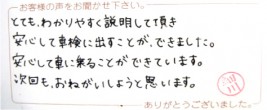 お客様の声をお聞かせ下さい。
とても、わかりやすく説明して頂き
安心して車検に出すことが、できました。
安心して車に乗ることができています。
次回も、おねがいしようと思います。
ありがとうございました。